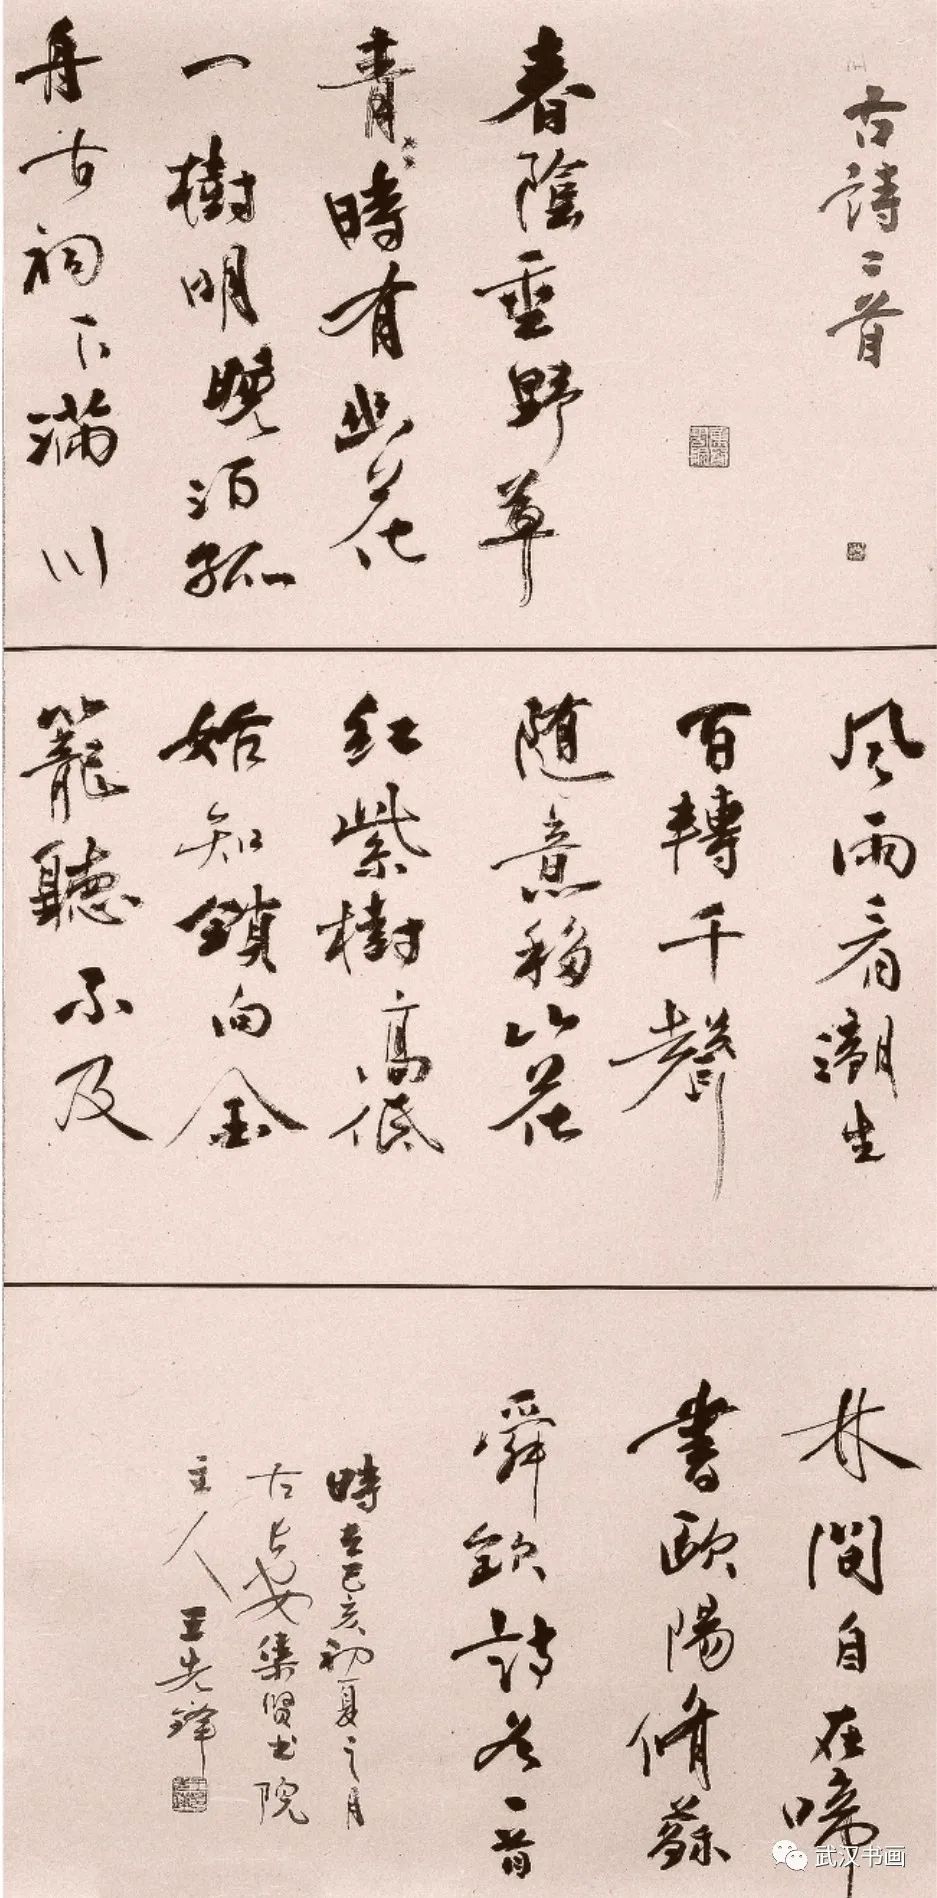 古詩二首
春陰垂野草
青青時有幽花
一樹明晚泊孤
舟古祠下滿川
風雨看潮生
百轉千聲
随意移山花
紅紫樹高低
始知鎖向金
籠聽不及
林間自在啼
書歐陽脩蘇
舜欽詩各一首
時在己亥初夏之月
古長安集賢書院
主人王先鋒
武汉书画